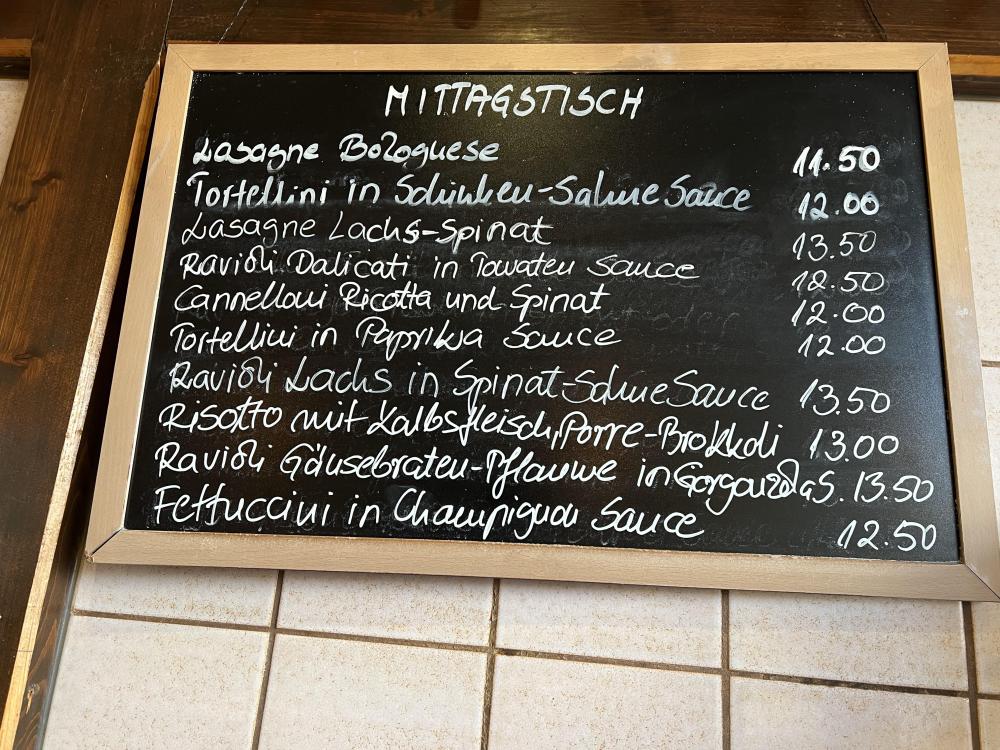 MITTAGSTISCH
Lasagne Bolognese 11.50
Tortellini in Schinken-Sahne Sauce 12.00
Lasagne Lachs-Spinat 13.50
Ravioli Dalicati in Tomaten Sauce 12.50
Cannelloni Ricotta und Spinat 12.00
Tortellini in Paprika Sauce 12.00
Ravioli Lachs in Spinat-Sahne Sauce 13.50
Risotto mit Kalbsfleisch, Porre-Brokkoli 13.00
Ravioli Gänsebraten-Pflaume in Gorgonzola S. 13.50
Fettuccini in Champignon Sauce 12.50